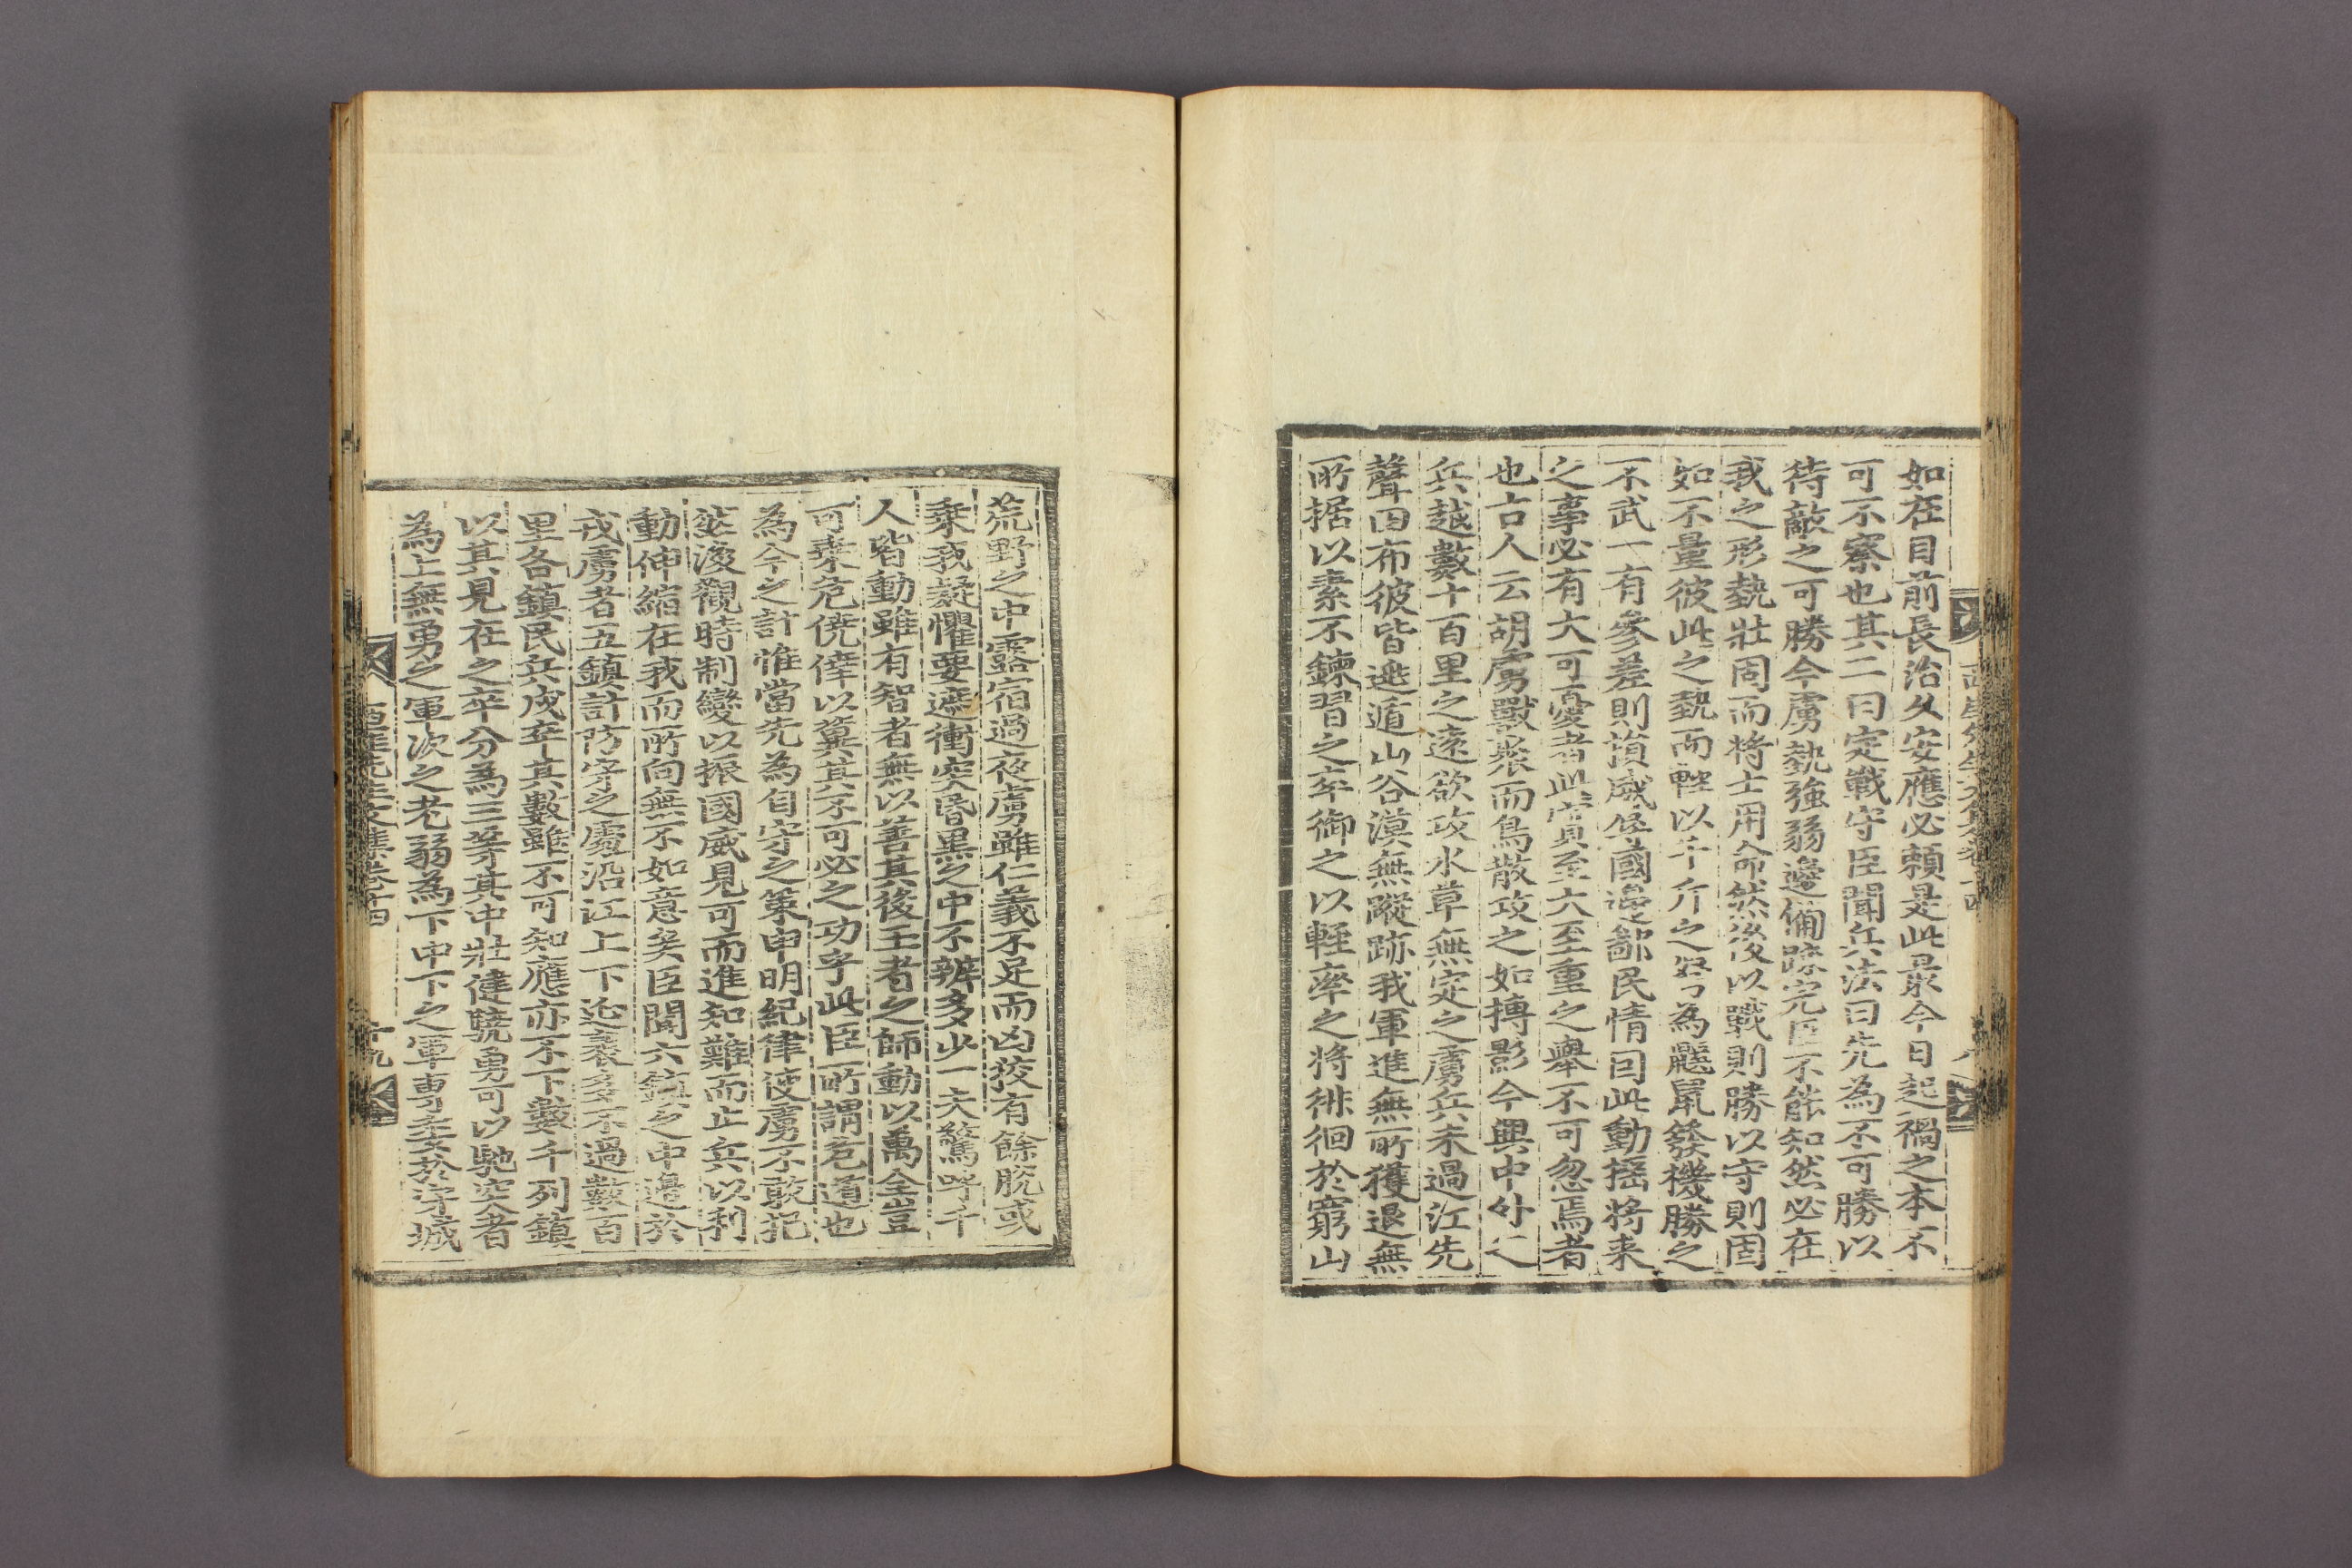 如在目前長治久安應必賴是此最今日起禍之本不
可不察也其二曰定戰守臣聞兵法曰先為不可勝以
待敵之可勝今虜勢強弱邊備踈完臣不能知然必在
我之形勢壯固而將士用命然後以戰則勝以守則固
如不量彼此之勢而輕以千斤之弩為鼷鼠發機勝之
不武一有參差則損威辱國邊鄙民情因此動搖將來
之事必有大可憂者此實至大至重之舉不可忽焉者
也古人云胡虜獸聚而鳥散攻之如搏影今興中外之
兵越數十百里之遠欲攻水草無定之虜兵未過江先
聲四布彼皆逃遁山谷漠無蹤跡我軍進無所獲退無
所据以素不鍊習之卒御之以輕率之將徘徊於窮山
荒野之中露宿過夜虜雖仁義不足而凶狡有餘脫或
乘我疑懼要遮衝突昏黑之中不辨多少一夫驚呼千
人皆動雖有智者無以善其後王者之師動以萬全豈
可乘危僥倖以冀其不可必之功乎此臣所謂危道也
為今之計惟當先為自守之策申明紀律使虜不敢犯
然後觀時制變以振國威見可而進知難而止兵以利
動伸縮在我而所向無不如意矣臣聞六鎮之中邊於
戎虜者五鎮計防守之處沿江上下延袤多不過數百
里各鎮民兵戍卒其數雖不可知應亦不下數千列鎮
以其見在之卒分為三等其中壯健驍勇可以馳突者
為上無勇之軍次之老弱為下中下之軍專委於守城
西厓先生文集卷十四 十九